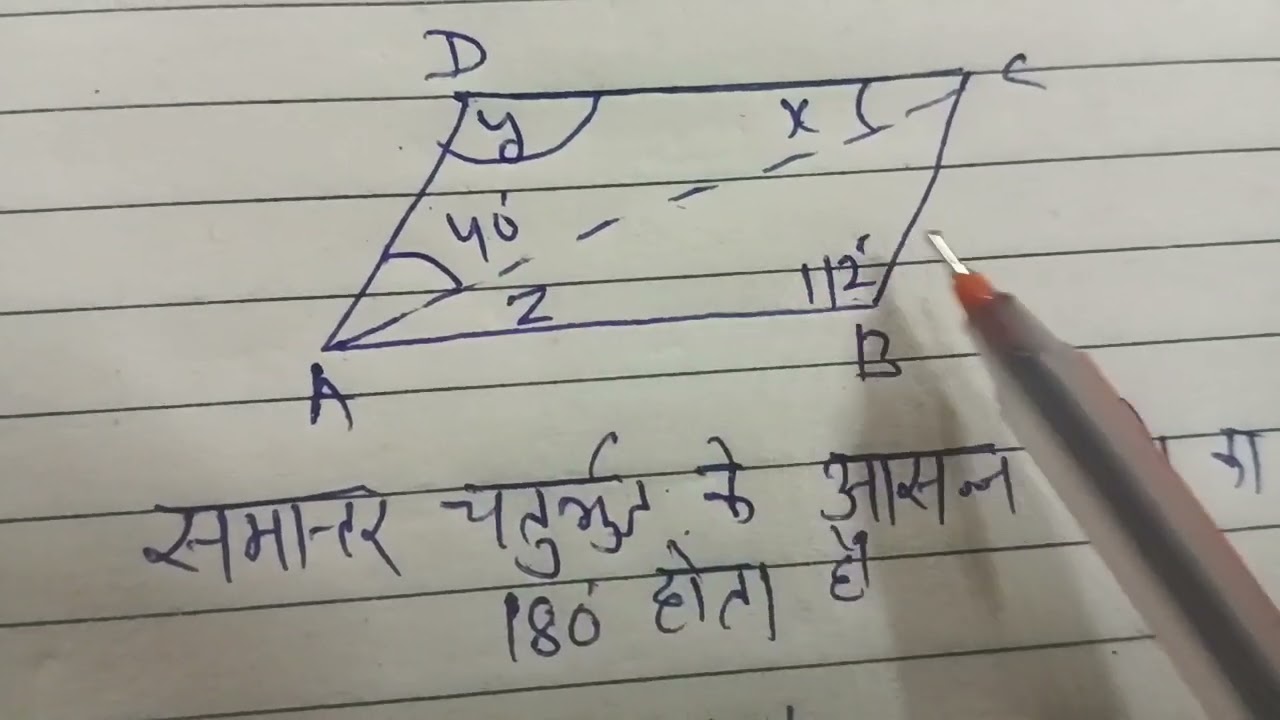 D
C
y
x
40°
112°
z
A
B
समान्तर चतुर्भुज के आसन्न का
180° होता है